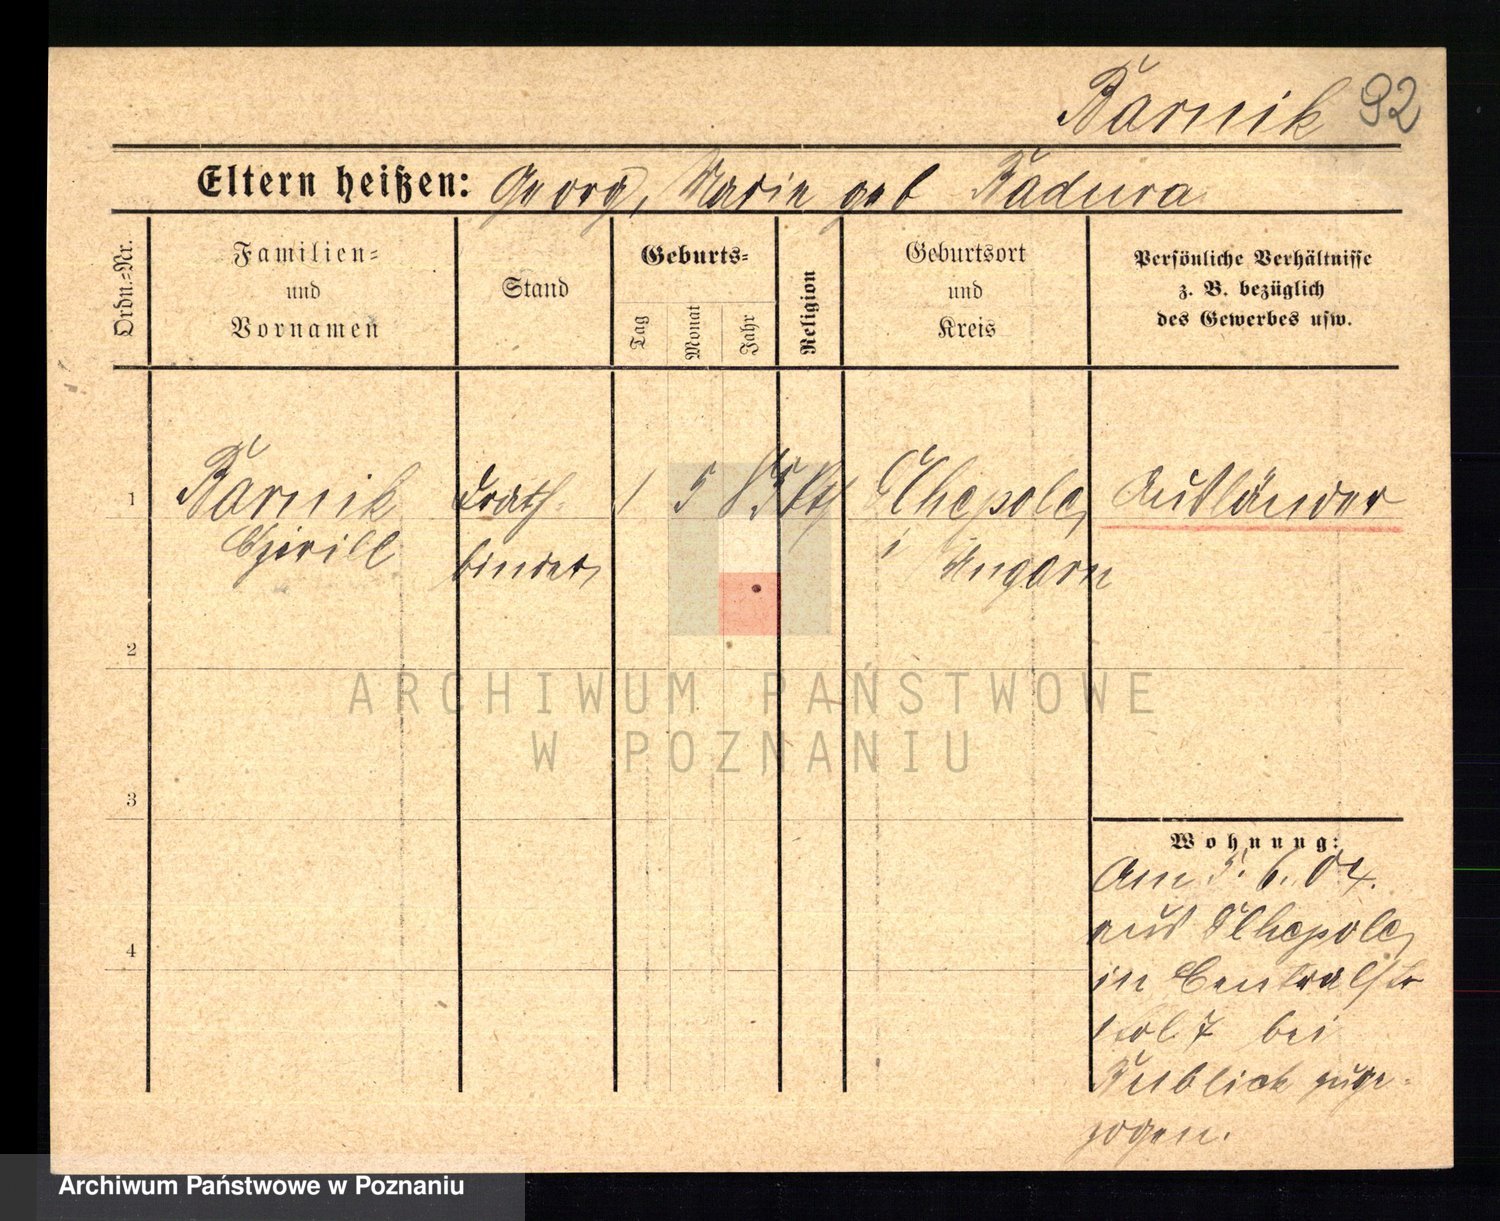 Barnik 92
Eltern heißen: Georg, Marie geb Kadura
Ordn.-Nr.
Familien-
und
Vornamen
Stand
Geburts-
Tag
Monat
Jahr
Religion
Geburtsort
und
Kreis
Persönliche Verhältnisse
z. B. bezüglich
des Gewerbes usw.
1 Barnik Drath- 1 5 Ausländer
binder, i Ungarn
2
ARCHIWUM PAŃSTWOWE
W POZNANIU
3
Wohnung:
Am 5. 6. 04.
aus
4
in Centralstr
7 bei
Kublick zuge-
zogen.
Archiwum Państwowe w Poznaniu